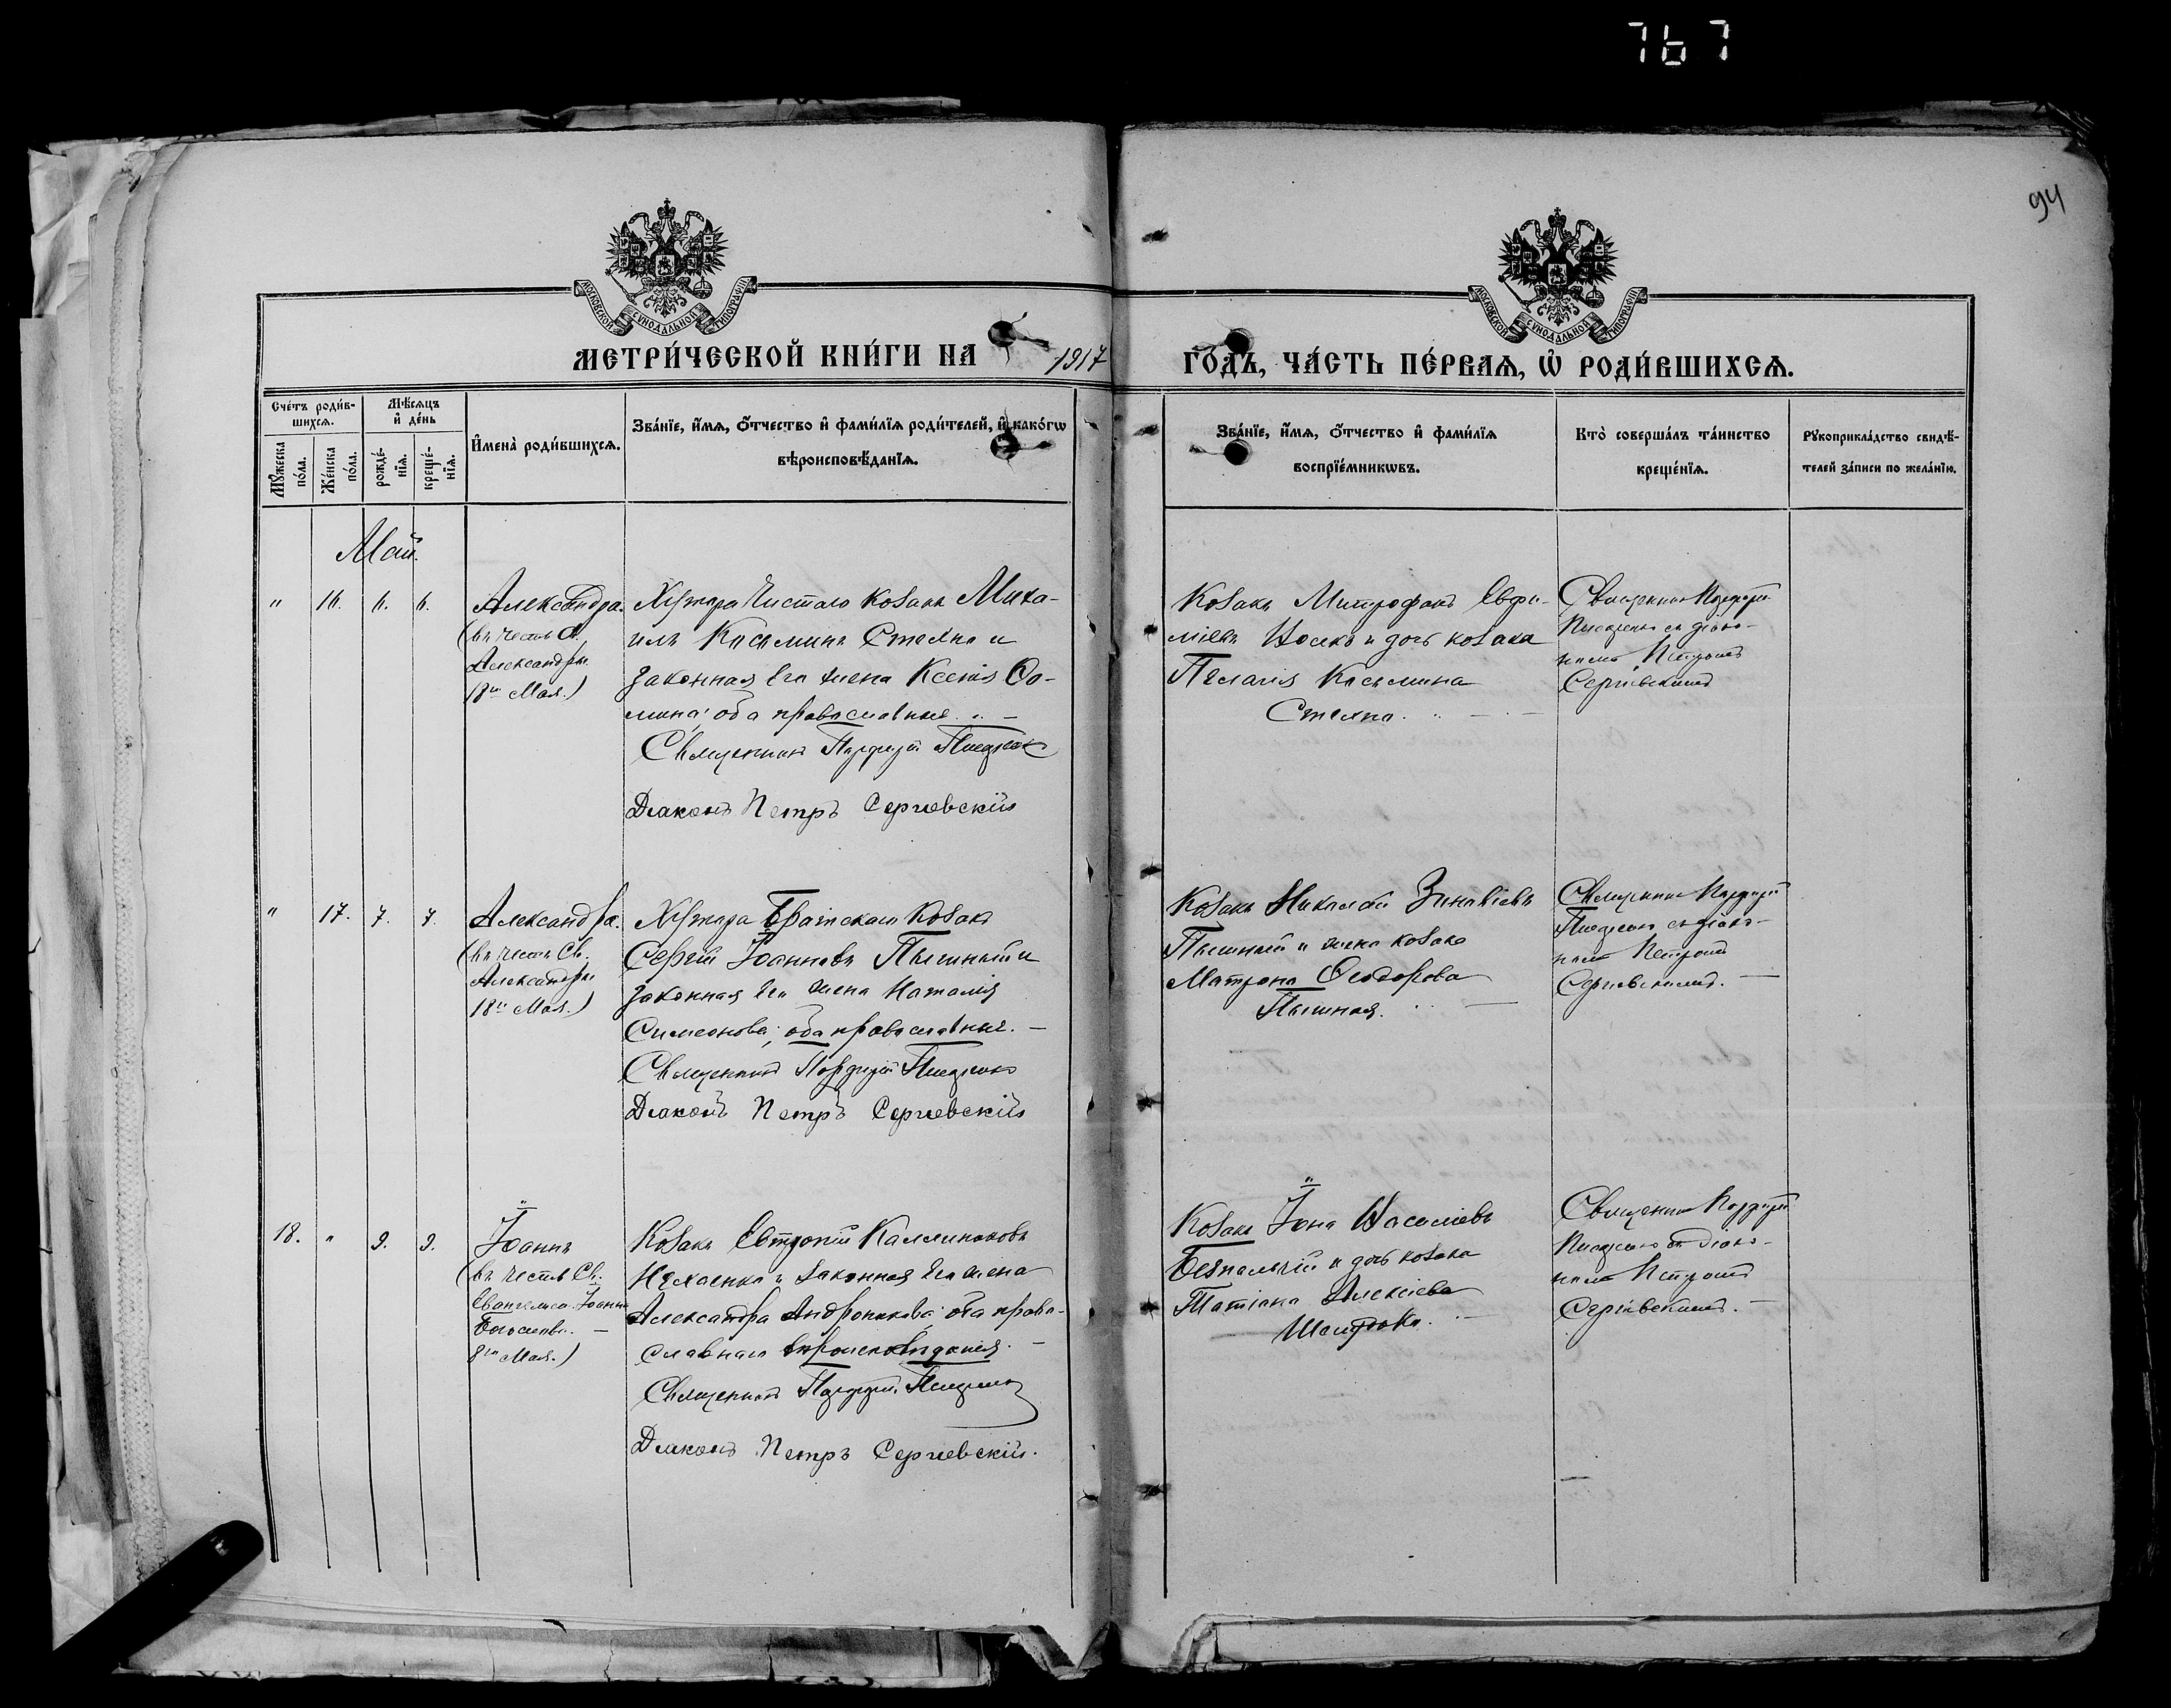 767
94
МОСКОВСКОЙ СУНОДАЛЬНОЙ ТИПОГРАФІИ
МОСКОВСКОЙ СУНОДАЛЬНОЙ ТИПОГРАФІИ
МЕТРИ́ЧЕСКОЙ КНИ́ГИ НА 1917 ГО́ДЪ, ЧА́СТЬ ПЕ́РВАЯ, Ѡ҆ РОДИ́ВШИХСЯ.
Сче́тъ роди́в-
шихся.
Мꙋ́жеска по́ла.
Же́нска по́ла.
Мѣ́сяцъ и҆ де́нь
рожде́-
нїя.
креще́-
нїя.
И҆мена̀ роди́вшихся.
Зва́нїе, и҆́мя, ѻ҆́тчество и҆ фами́лїя роди́телей, и҆ како́гѡ
вѣроисповѣ́данїя.
Зва́нїе, и҆́мя, ѻ҆́тчество и҆ фами́лїя
воспрїе́мникѡвъ.
Кто̀ соверша́лъ та́инство
креще́нїя.
Рꙋкоприкла́дство свидѣ́-
телей за́писи по жела́нїю.
Май.
" 16. 6. 6.
Александра.
(въ честь Св.
Александры
18го Мая.)
Хутора Чистаго козакъ Миха-
илъ Косьминъ Стеяна и
законная его жена Ксенія Ѳо-
мина; оба православные. " —
Священникъ
Діаконъ Петръ Сергіевскій
Козакъ Митрофанъ Евфи-
міевъ и дочь козака
Пелагія Косьмина
Стеяна.
Священникъ
съ діако-
номъ Петромъ
Сергіевскимъ
" 17. 7. 7.
Александра.
(въ честь Св.
Александры
18го Мая.)
Хутора Братскаго козакъ
Сергій Іоанновъ Пышный и
законная его жена Наталія
Симеонова; оба православные. —
Священникъ
Діаконъ Петръ Сергіевскій
Козакъ Николай Зиновіевъ
Пышный и жена козака
Матрона Ѳеодорова
Пышная.
Священникъ
съ діако-
номъ Петромъ
Сергіевскимъ. —
18. " 9. 9.
Іоаннъ
(въ честь Св.
Евангелиста Іоанна
Богослова. —
8го Мая.)
Козакъ Евтропій Каллиниковъ
и законная его жена
Александра Андроникова; оба право-
славнаго вѣроисповѣданія. —
Священникъ
Діаконъ Петръ Сергіевскій.
Козакъ Іона Васильевъ
Безпалый и дочь козака
Татіана Алексіева
Священникъ
съ діако-
номъ Петромъ
Сергіевскимъ. —